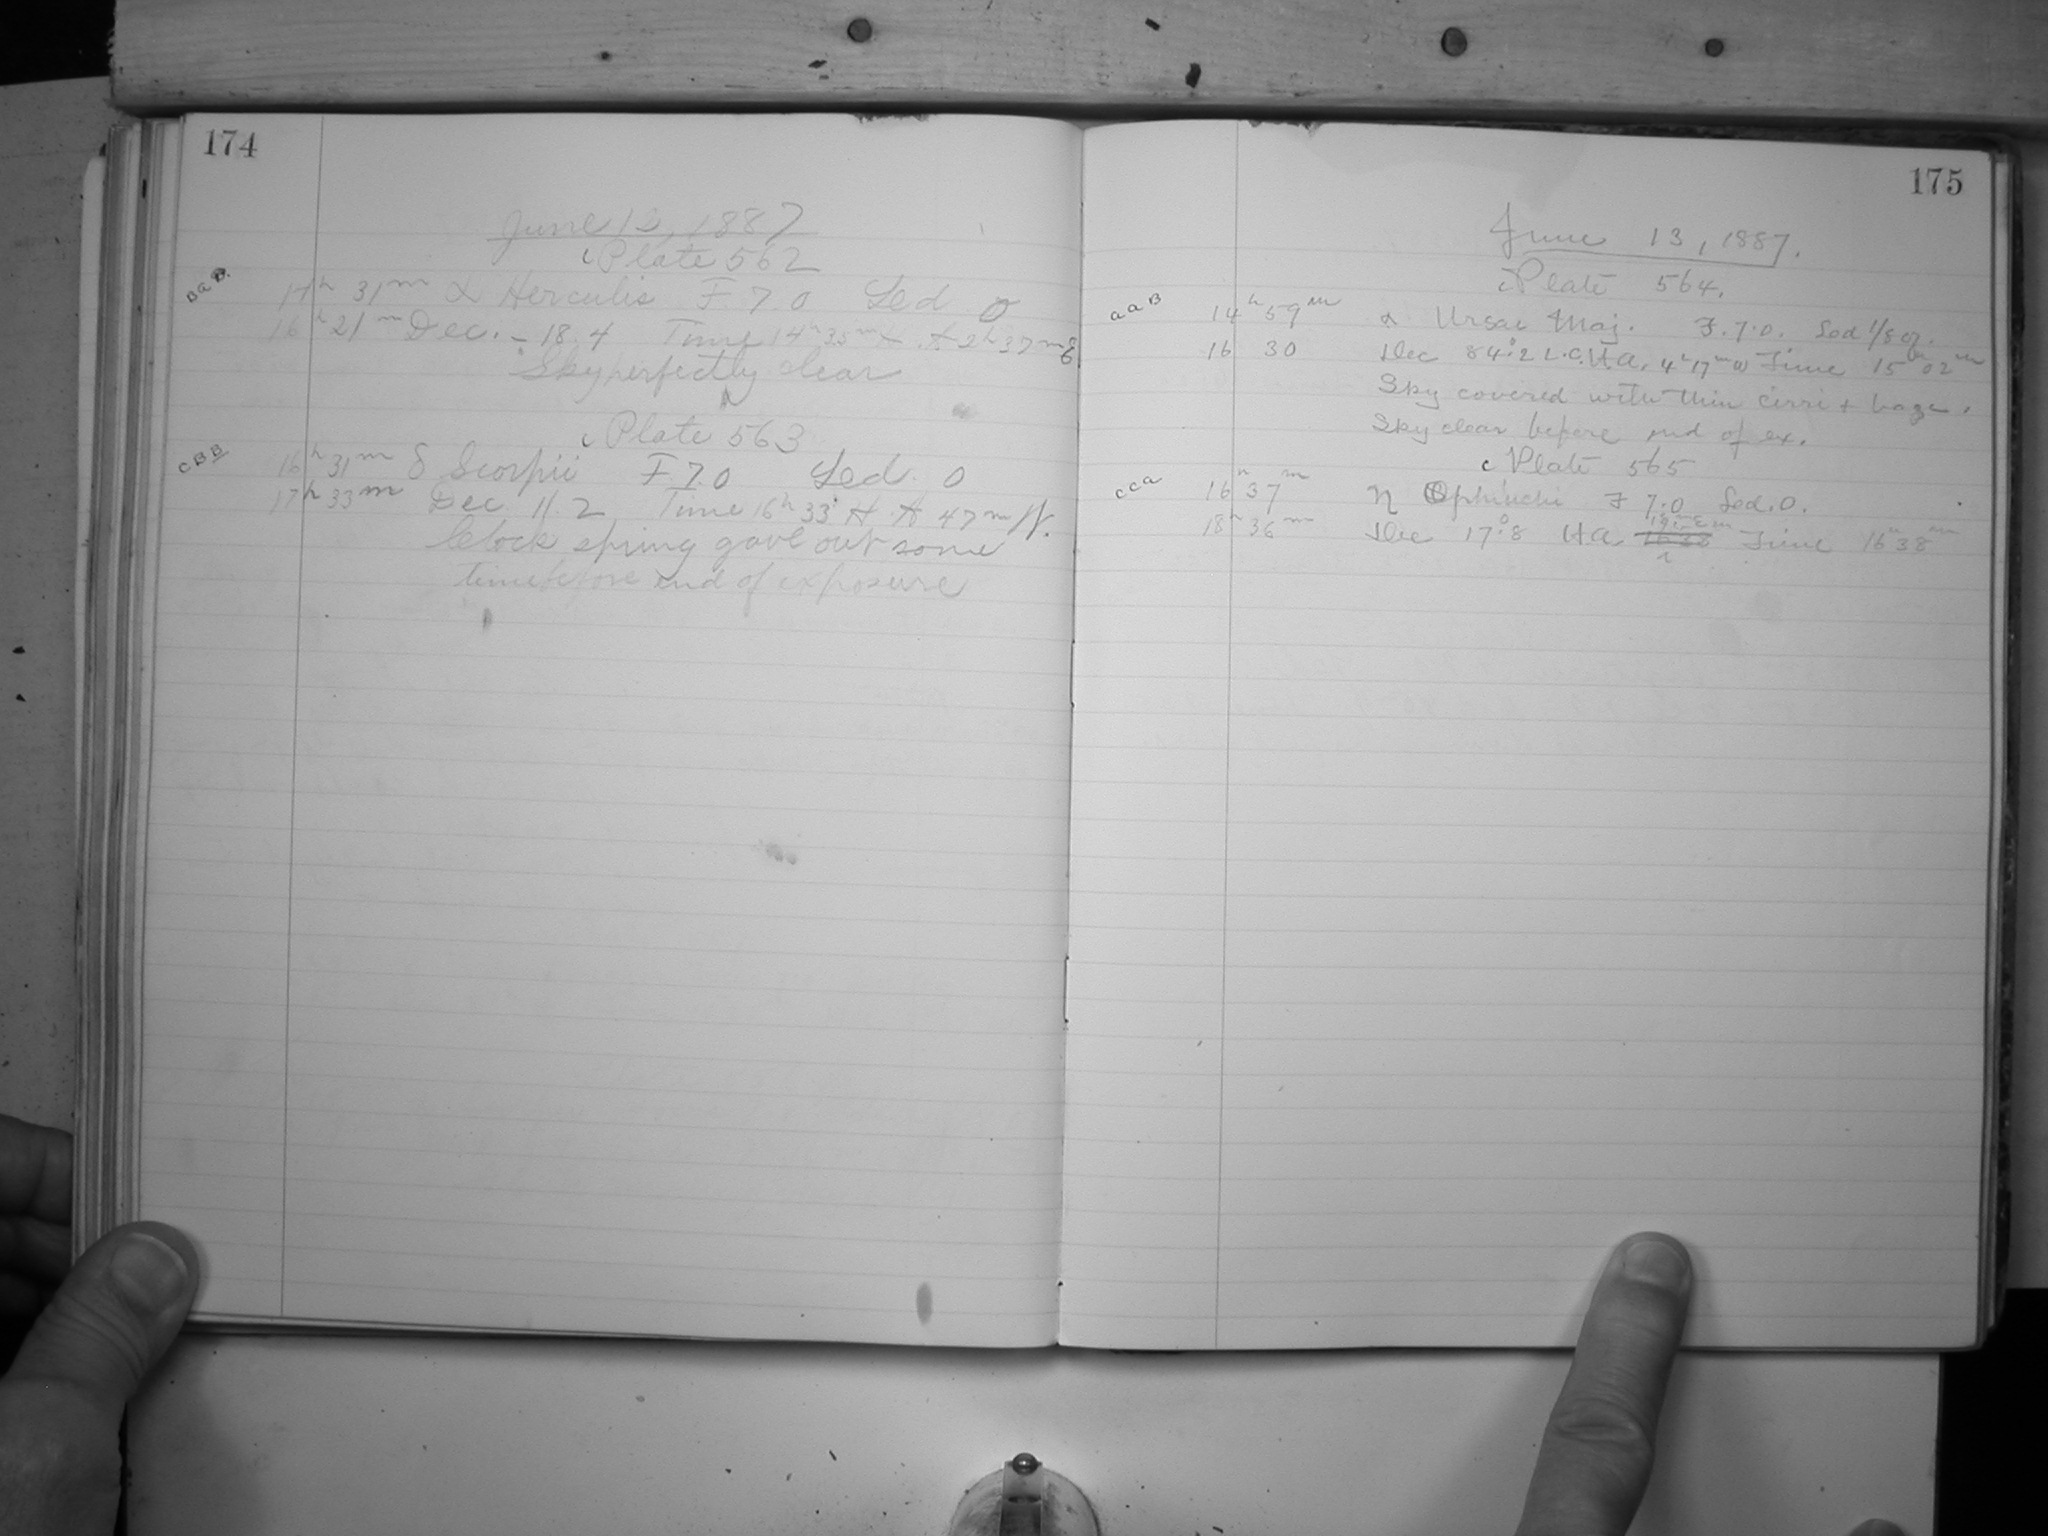 174
June 13, 1887
c Plate 562
BaB. 14h 31m α Herculis F 7.0 Sed 0
16h 21m Dec. - 18.4 Time 14h 33m H. A 2h 37m E
Sky perfectly clear
c Plate 563
CBB 16h 31m δ Scorpii F 7.0 Sed. 0
17h 33m Dec 11.2 Time 16h 33 H. A 47m W.
Clock spring gave out some
time before end of exposure
175
June 13, 1887.
c Plate 564.
aaB 14h 59m α Ursae Maj. F. 7.0. Sed 1/8 oz.
16 30 Dec 84°.2 L.C. H.A. 4h 17m W Time 15h 02m
Sky covered with thin cirri + haze.
Sky clear before end of ex.
c Plate 565
cca 16h 37m η Ophiuchi F 7.0 Sed. 0.
18h 36m Dec 17°.8 H.A. Time 16h 38m